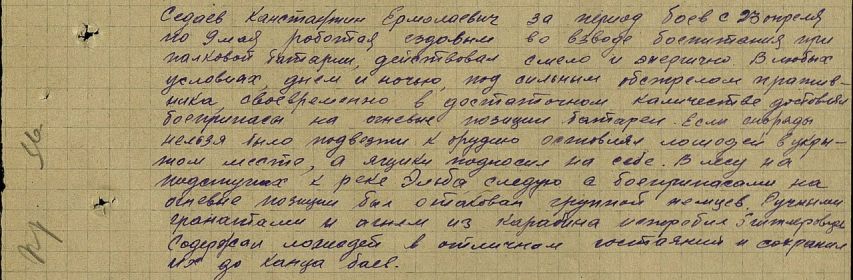 Седаев Канстантин Ермолаевич за период боев с 23 апреля
по 9 мая работая ездовым во взводе боепитания при
палковой батарии, действовал смело и энергично. В любых
условиях днем и ночью, под сильным обстрелом против-
ника, своевременно в достаточном каличестве доставлял
боеприпасы на огневые позиции батареи. Если снаряды
нельзя было подвезти к орудию оставлял лошадей в укры-
том месте, а ящики подносил на себе. В лесу на
подступах к реке Эльба следуя с боеприпасами на
огневые позиции был атакован группой немцев. Ручными
гранатами и огнем из карабина истребил 5 гитлеровцев
Содержал лошадей в отличном состаянии и сохранил
их до канца боев.